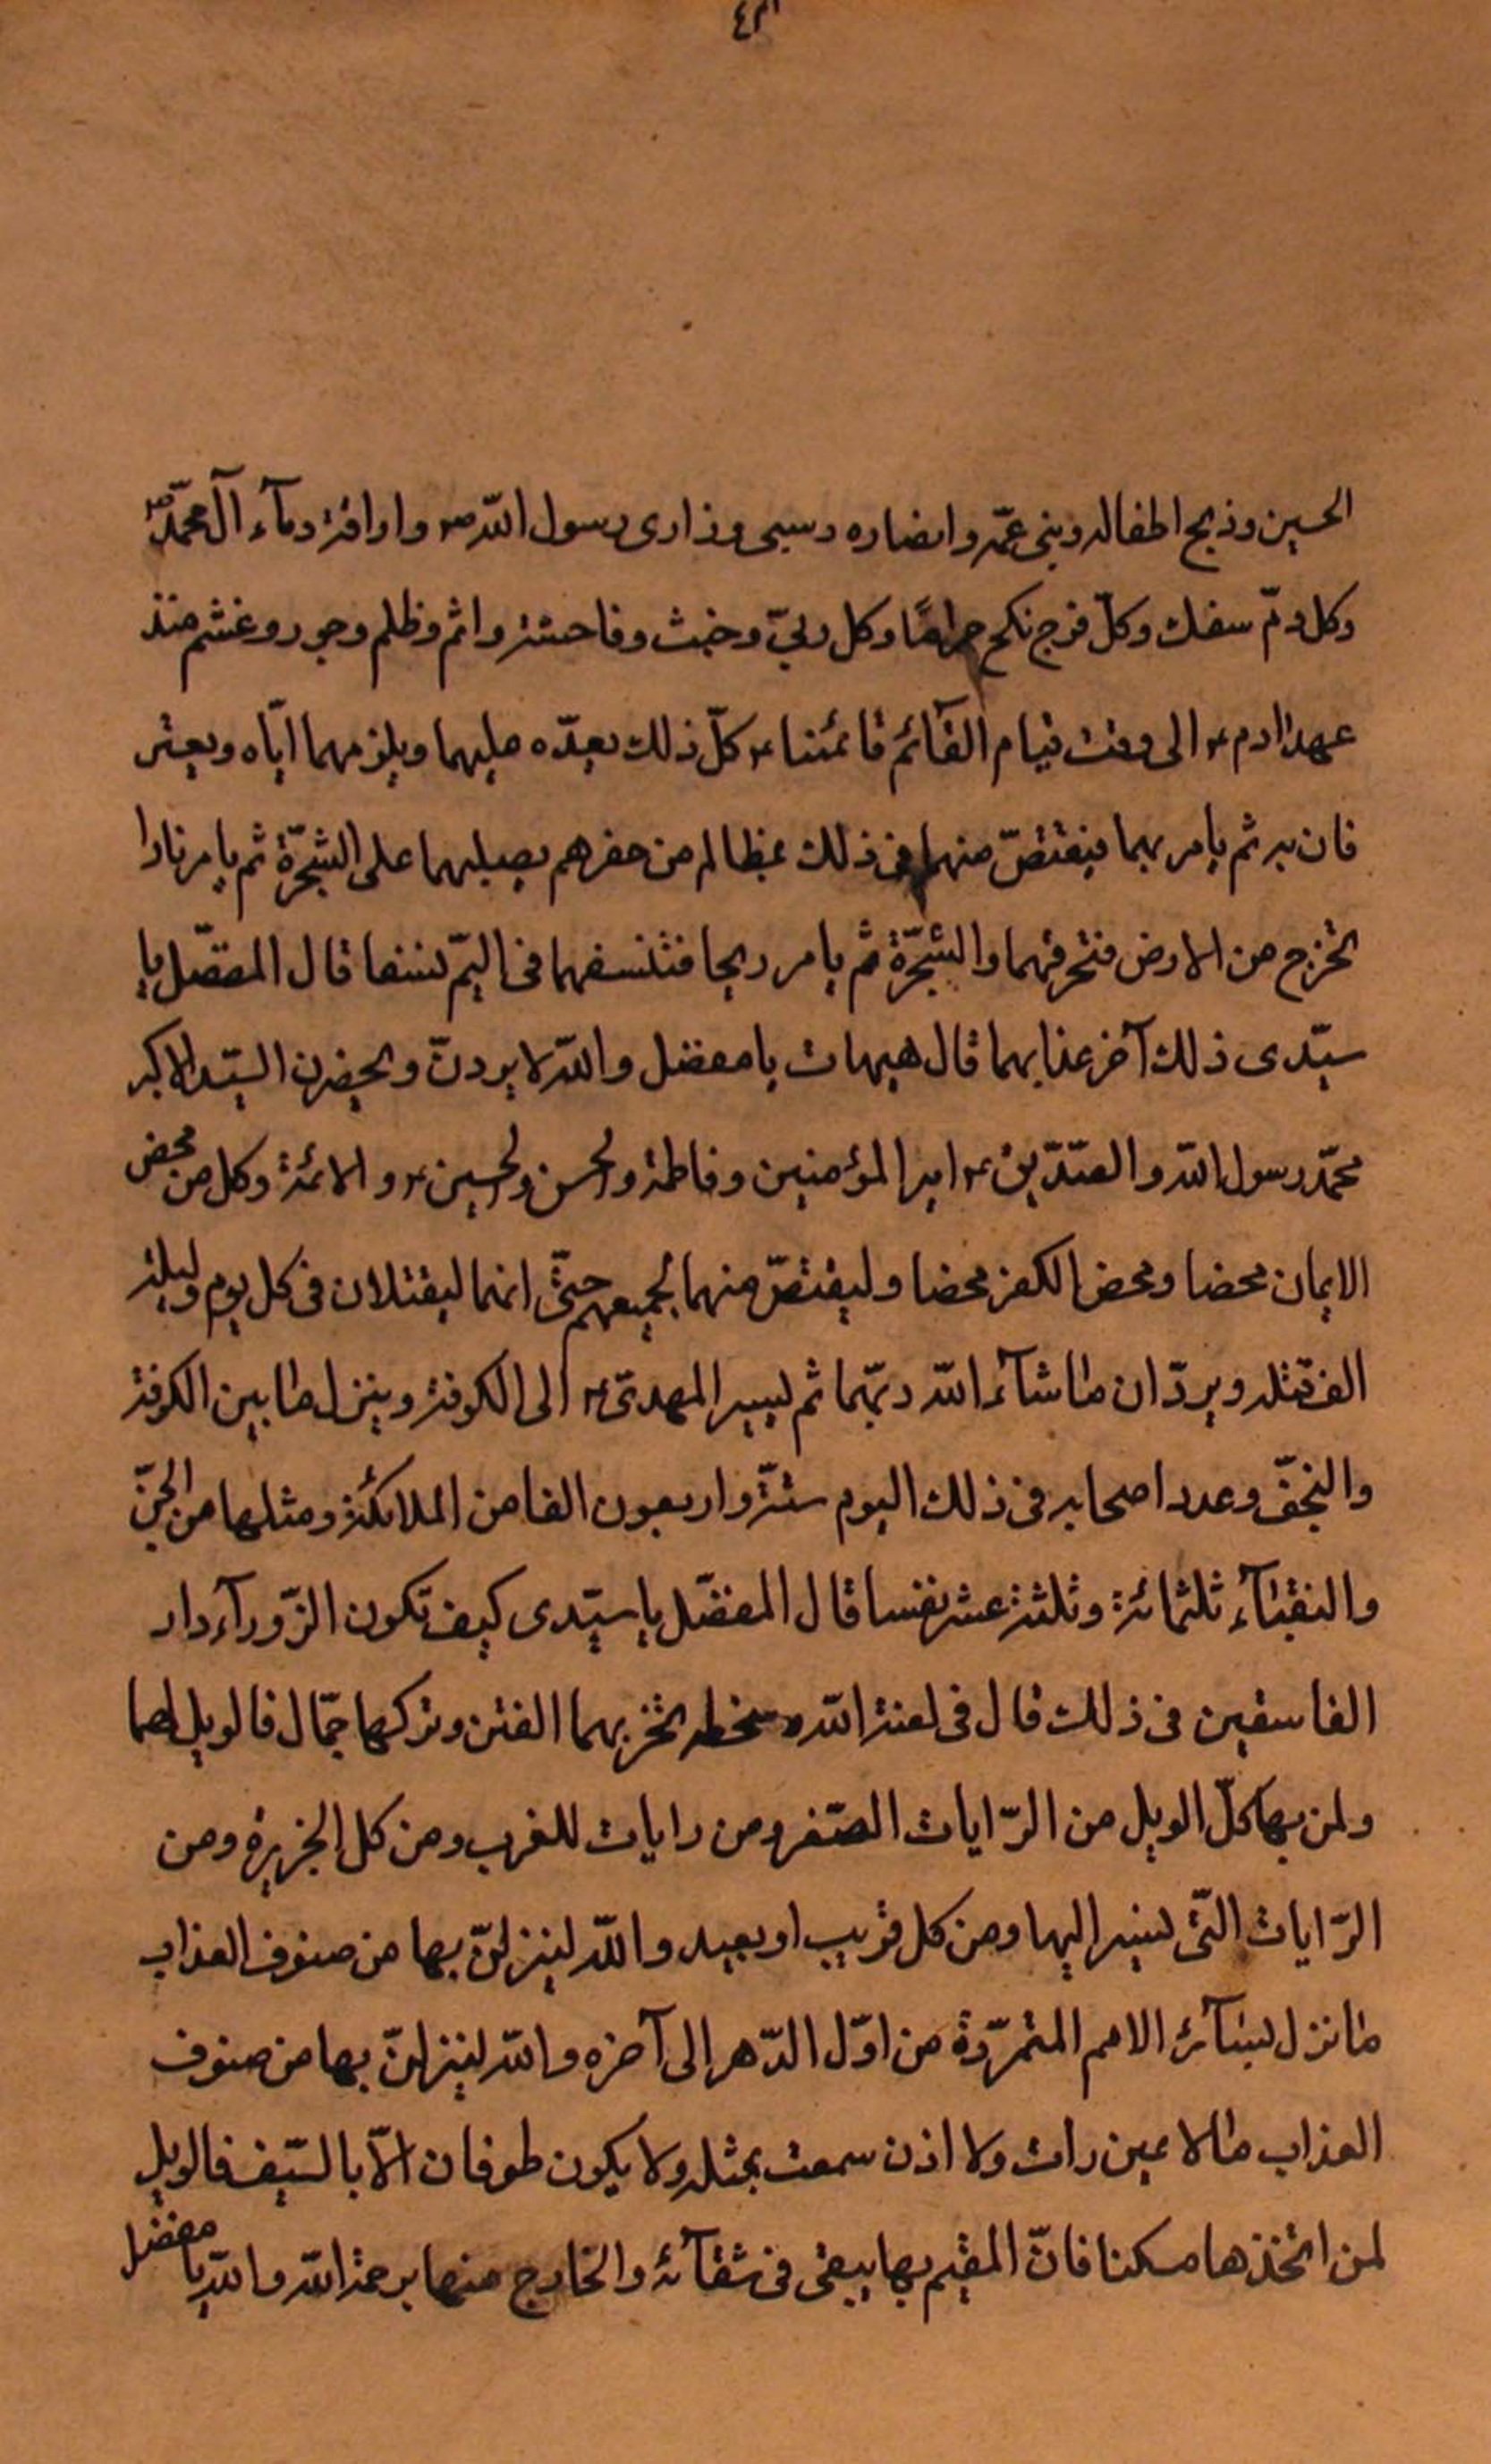 الحسين وذبح اطفاله وبنى عمّه وانصاره وسبى وذارى رسول اللّه ص واراقة دمآء آل محمّد ص
وكل دمّ سفك وكلّ فرج نكح حرامًا وكل رين وخبث وفاحشة واثم وظلم وجور وغشم منذ
عهد ادم ع الى وقت قيام القآئم قائمنا ع كلّ ذلك يعدّه عليهما ويلزمهما ايّاه ويعتر
فان به ثم يامر بهما فيقتصّ منهما فى ذلك بمظالم من حضرهم يصلبهما على الشجرّة ثم يامر نارا
تخرج من الارض فتحرقهما والشجرّة ثم يامر ريحا فتنسفهما فى اليمّ نسفا قال المفضّل يا
سيّدى ذلك آخر عذابهما قال هيهات يا مفضل واللّه لا يردنّ ويحضرن السيّد الاكبر
محمّد رسول اللّه والصّدّيق ع امير المؤمنين وفاطمة والحسن والحسين ع والائمة وكل من محض
الايمان محضا ومحض الكفر محضا وليقتصّ منهما لجميعهم حتّى انهما ليقتلان فى كل يوم وليلة
الف قتلة ويردّان ما شآء اللّه ربّهما ثم يسير المهدىّ ع الى الكوفة وينزل ما بين الكوفة
والنجفّ وعدد اصحابه فى ذلك اليوم ستّة واربعون الفا من الملائكة ومثلها من الجنّ
والنقبآء ثلثمائة وثلثة عشر نفسا قال المفضّل يا سيّدى كيف تكون الزّورآء دار
الفاسقين فى ذلك قال فى لعنة اللّه وسخطه تخربهما الفتن وتركها جمّال فالويل لهما
ولمن بها كلّ الويل من الرّايات الصّفر ومن رايات للغرب ومن كل الجزيرة ومن
الرّايات التّى تسير اليها ومن كل قريب او بعيد واللّه لينزلنّ بها من صنوف العذاب
ما نزل لسآئر الامم المتمرّدة من اوّل الدّهر الى آخره واللّه لينزلنّ بها من صنوف
العذاب ما لا عين رات ولا اذن سمعت بمثله ولا يكون طوفان الّا بالسّيف فالويل
لمن اتّخذها مسكنا فانّ المقيم بها يبقى فى شقآئه والخارج منها برحمة اللّه واللّه يا مفضل